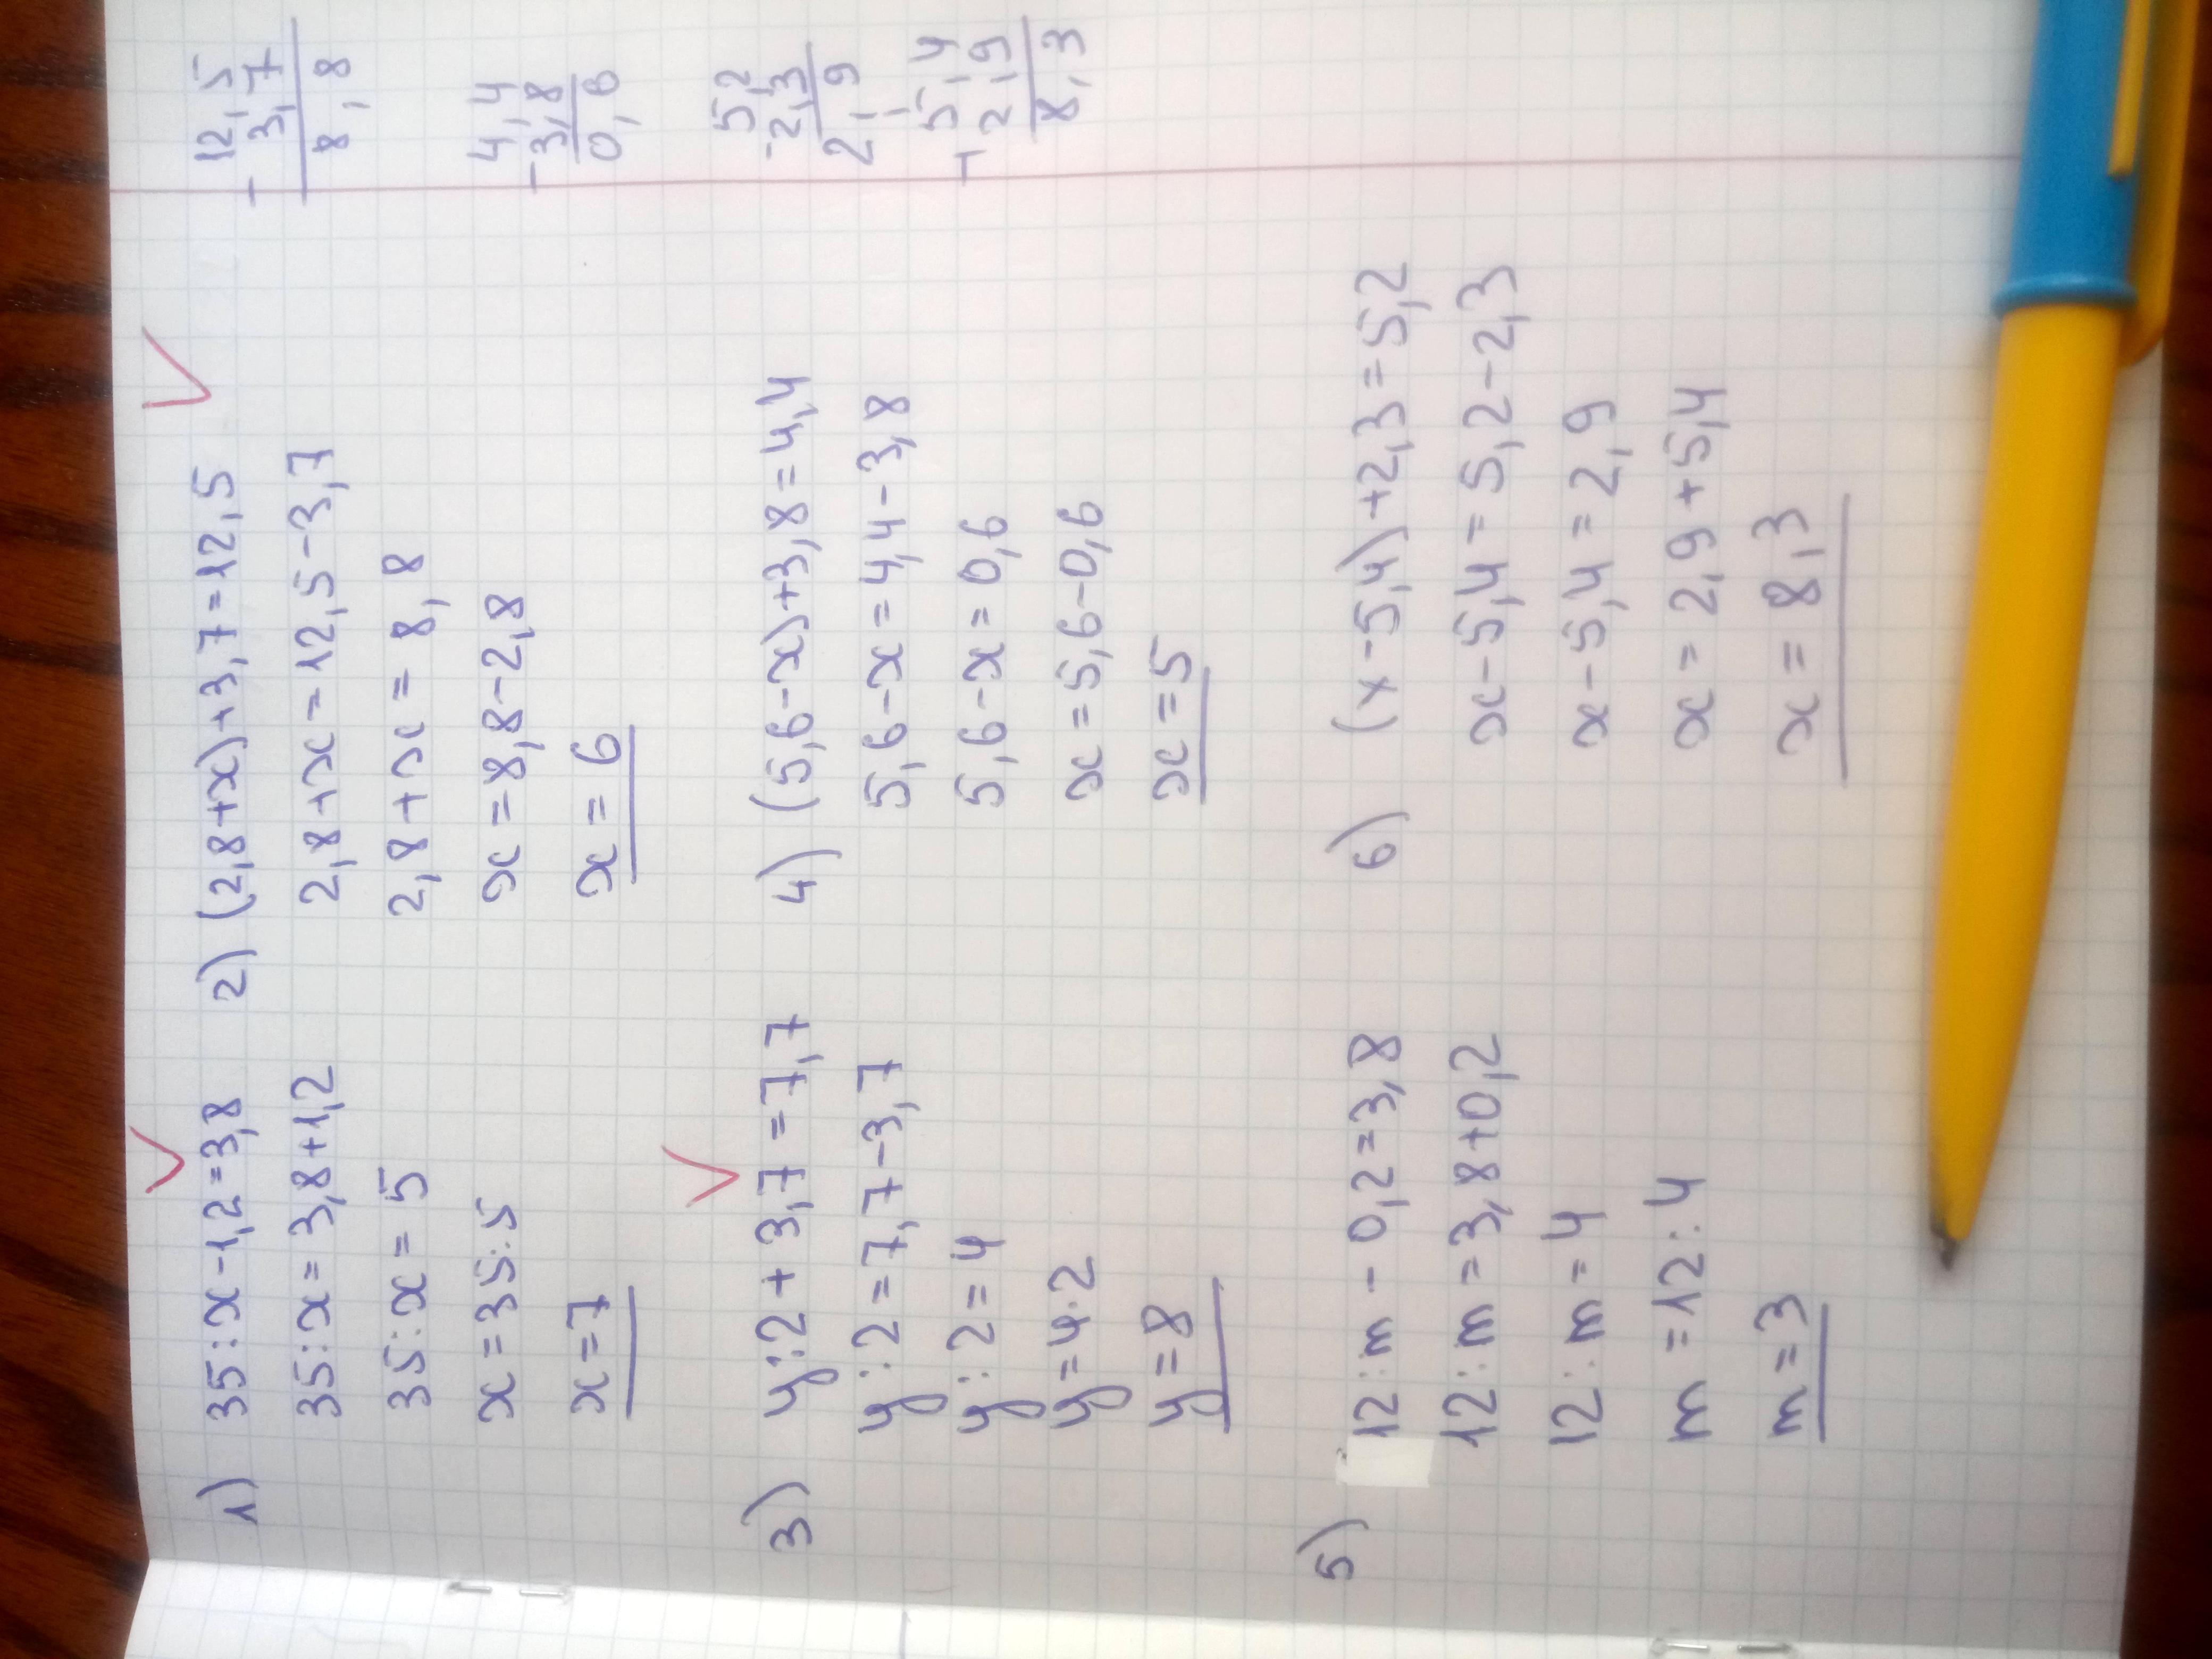 1) 35:x-1,2=3,8
35:x=3,8+1,2
35:x=5
x=35:5
x=7
2) (2,8+x)+3,7=12,5
2,8+x=12,5-3,7
2,8+x=8,8
x=8,8-2,8
x=6
3) y:2+3,7=7,7
y:2=7,7-3,7
y:2=4
y=4·2
y=8
4) (5,6-x)+3,8=4,4
5,6-x=4,4-3,8
5,6-x=0,6
x=5,6-0,6
x=5
5) 12:m-0,2=3,8
12:m=3,8+0,2
12:m=4
m=12:4
m=3
6) (x-5,4)+2,3=5,2
x-5,4=5,2-2,3
x-5,4=2,9
x=2,9+5,4
x=8,3
- 12,5
3,7
8,8
4,4
- 3,8
0,6
5,2
- 2,3
2,9
5,4
+ 2,9
8,3